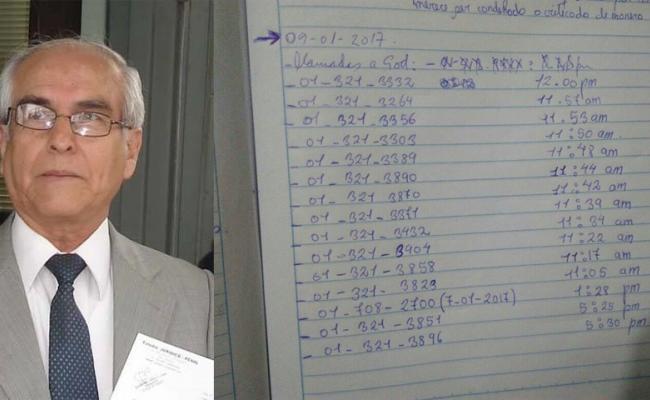 ESTUDIO JURIDICO - PENAL
por condenado o criticado de manera
→ 09-01-2017.
- Llamadas a God: -
- 01-321-3332 12.00 pm
- 01-321-3264 11.57 am
01-321-3356 11.53 am
- 01-321-3303 11:50 am.
- 01-321-3389 11:48 am
- 01-321-3890 11:44 am
- 01-321-3870 11:42 am
- 01-321-3371 11:39 am
- 01-321-3432 11:34 am
- 01-321-3904 11:22 am
- 01-321-3858 11:17 am
- 01-321-3823 11:05 am
- 01-708-2700 (7-01-2017) 1:28 pm
- 01-321-3851 5:25 pm
- 01-321-3896 5:30 pm